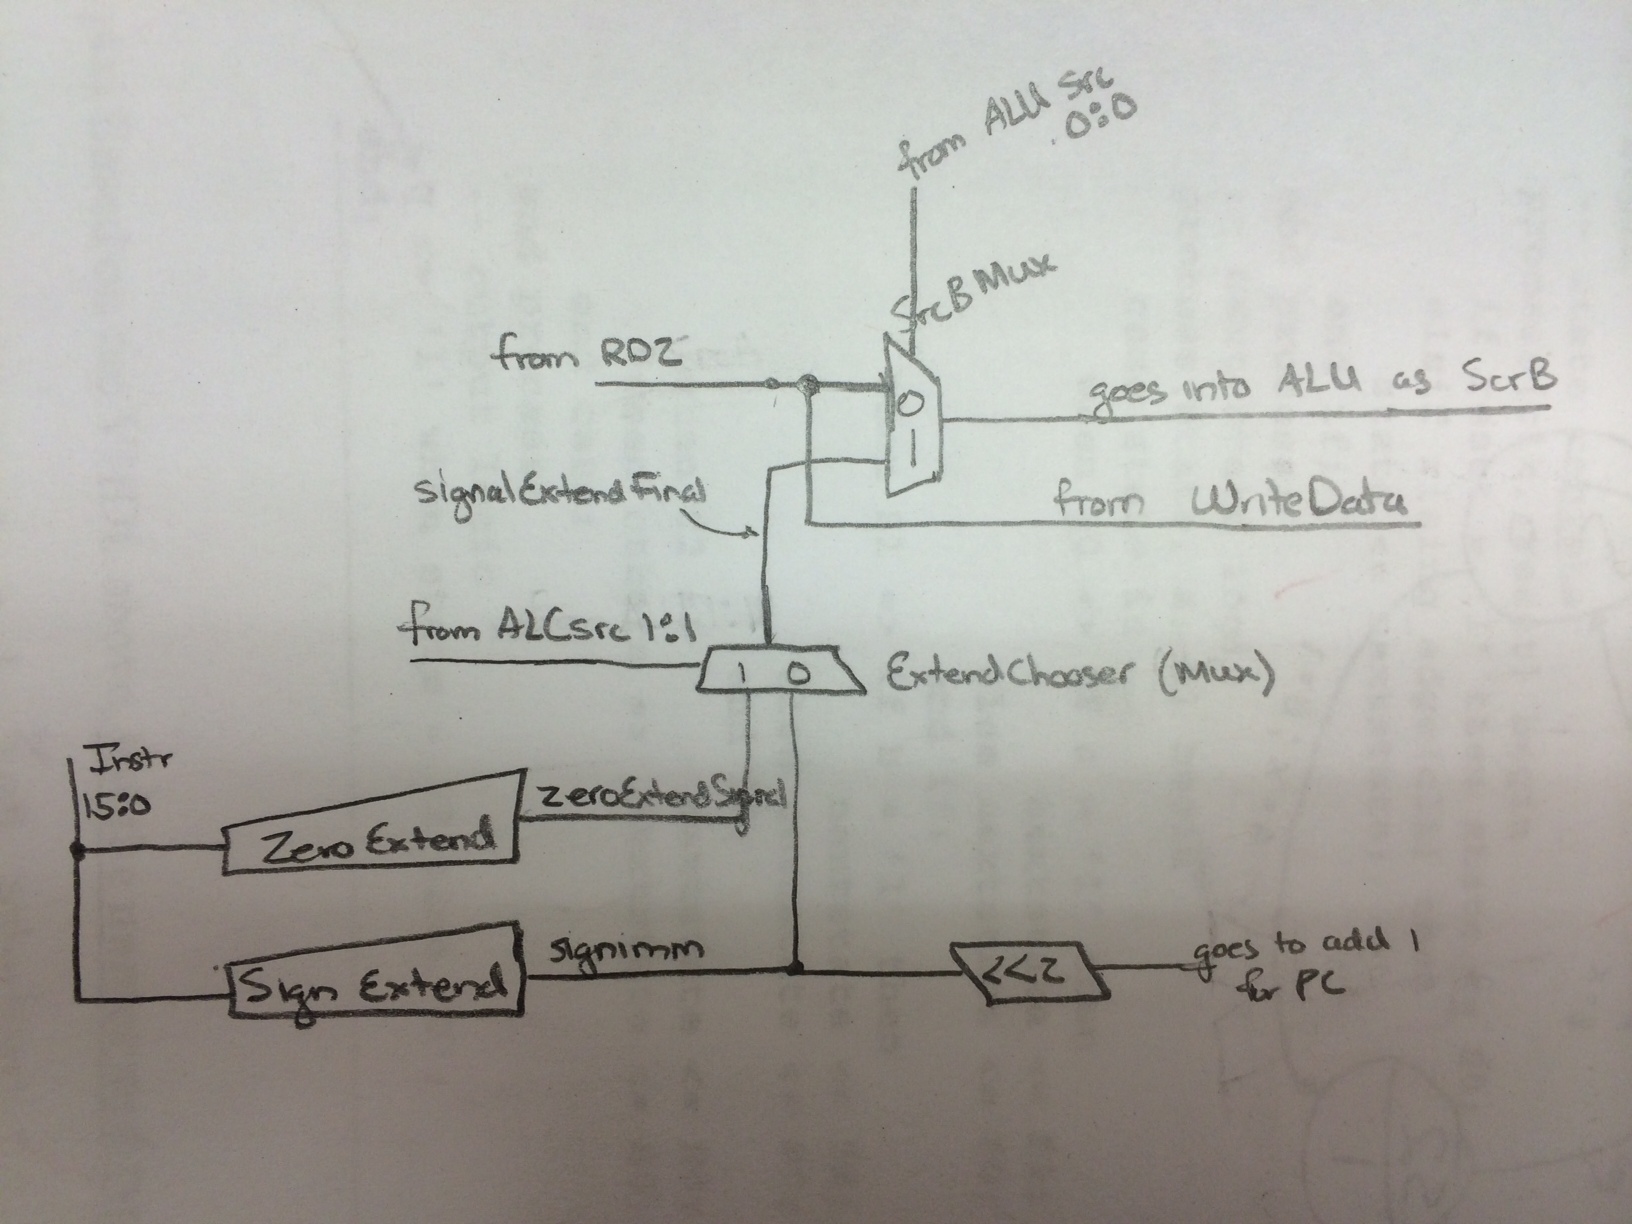 from ALU Src
0:0
SrcB Mux
from RD2
0
goes into ALU as ScrB
1
signalExtendFinal
from WriteData
from ALCsrc 1:1
1 0
ExtendChooser (Mux)
Instr
15:0
zeroExtendSignal
Zero Extend
signimm
Sign Extend
<<2
goes to add 1
for PC